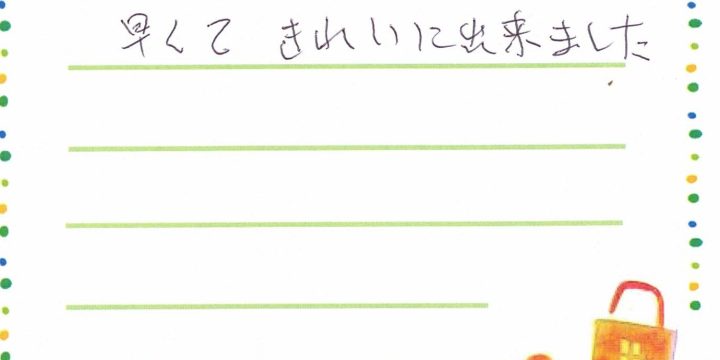 早くて きれいに出来ました